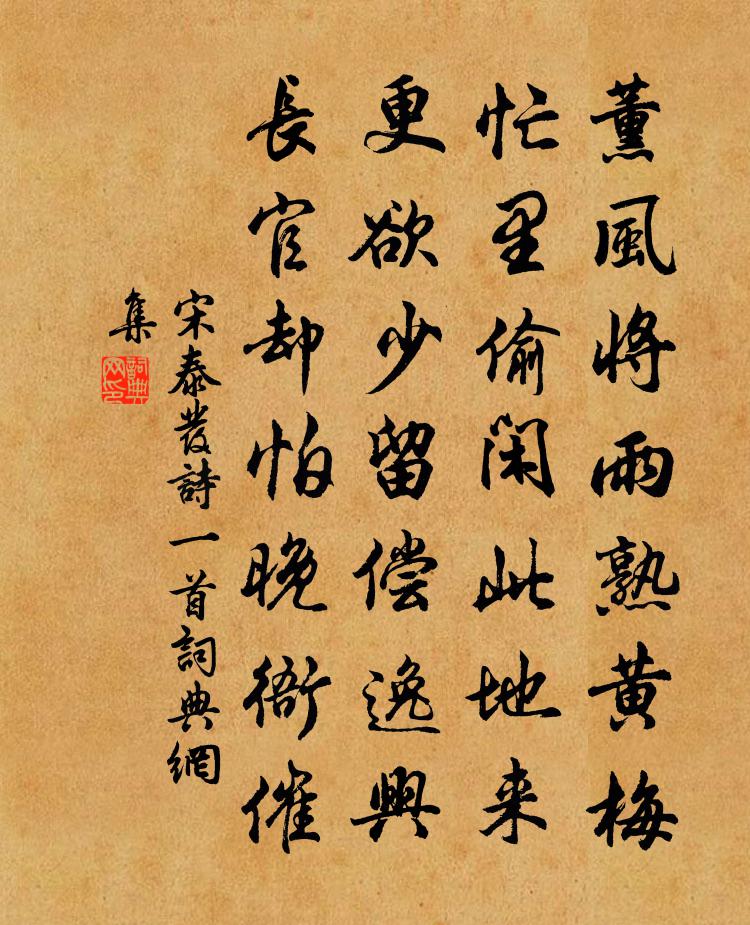 薰風將雨熟黄梅
忙里偷闲此地来
更欲少留偿逸興
長官却怕晚衙催
宋泰發詩一首詞典網
集
詞典
网印